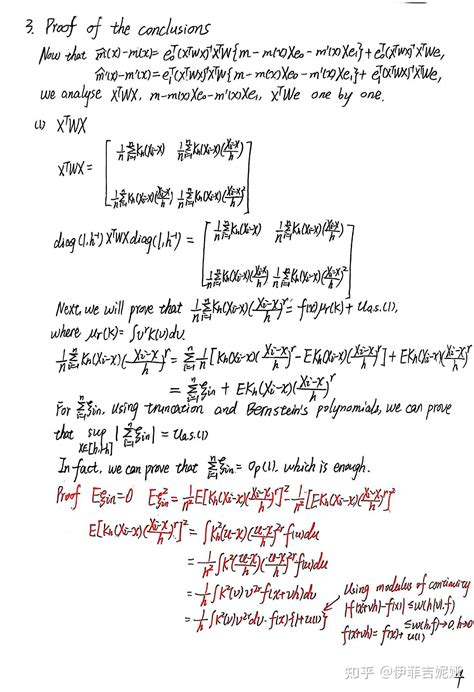 3. Proof of the conclusions
Now that m̂(x)-m(x)=e₀ᵀ(XᵀWX)⁻¹XᵀW{m-m(x)Xe₀-m'(x)Xe₁}+e₀ᵀ(XᵀWX)⁻¹XᵀWe,
m̂'(x)-m'(x)=e₁ᵀ(XᵀWX)⁻¹XᵀW{m-m(x)Xe₀-m'(x)Xe₁}+e₁ᵀ(XᵀWX)⁻¹XᵀWe,
we analyse XᵀWX, m-m(x)Xe₀-m'(x)Xe₁, XᵀWe one by one.
(1) XᵀWX
XᵀWX= [ 1/n Σᵢ₌₁ⁿ Kh(Xi-x)  1/n Σᵢ₌₁ⁿ Kh(Xi-x)(Xi-x/h)
1/n Σᵢ₌₁ⁿ Kh(Xi-x)(Xi-x/h)  1/n Σᵢ₌₁ⁿ Kh(Xi-x)(Xi-x/h)² ]
diag(1,h⁻¹)XᵀWXdiag(1,h⁻¹)= [ 1/n Σᵢ₌₁ⁿ Kh(Xi-x)  1/n Σᵢ₌₁ⁿ Kh(Xi-x)(Xi-x/h)
1/n Σᵢ₌₁ⁿ Kh(Xi-x)(Xi-x/h)  1/n Σᵢ₌₁ⁿ Kh(Xi-x)(Xi-x/h)² ]
Next, we will prove that 1/n Σᵢ₌₁ⁿ Kh(Xi-x)(Xi-x/h)ʳ=f(x)μr(K)+Ua.s.(1),
where μr(K)=∫vʳK(v)dv.
1/n Σᵢ₌₁ⁿ Kh(Xi-x)(Xi-x/h)ʳ = Σᵢ₌₁ⁿ 1/n [Kh(Xi-x)(Xi-x/h)ʳ-EKh(Xi-x)(Xi-x/h)ʳ]+EKh(Xi-x)(Xi-x/h)ʳ
= Σᵢ₌₁ⁿ ξin + EKh(Xi-x)(Xi-x/h)ʳ
For Σᵢ₌₁ⁿ ξin, using truncation and Bernstein's polynomials, we can prove
that sup x∈[h,1-h] |Σᵢ₌₁ⁿ ξin| = Ua.s.(1)
In fact, we can prove that Σᵢ₌₁ⁿ ξin=op(1), which is enough.
Proof Eξin=0  Eξin²=1/n² E[Kh(Xi-x)(Xi-x/h)ʳ]²-1/n² [EKh(Xi-x)(Xi-x/h)ʳ]²
E[Kh(Xi-x)(Xi-x/h)ʳ]² = ∫Kh²(u-x)(u-x/h)²ʳf(u)du
= 1/h² ∫K²(u-x/h)(u-x/h)²ʳf(u)du
= 1/h ∫K²(v)v²ʳ·f(x+vh)dv
= 1/h ∫K²(v)v²ʳdv·f(x){1+u(1)}
Using modulus of continuity
|f(x+vh)-f(x)|≤w(h|v|,f)
≤w(h,f)→0, h→0
f(x+vh)=f(x)+u(1)
4
知乎 @伊菲吉妮娅